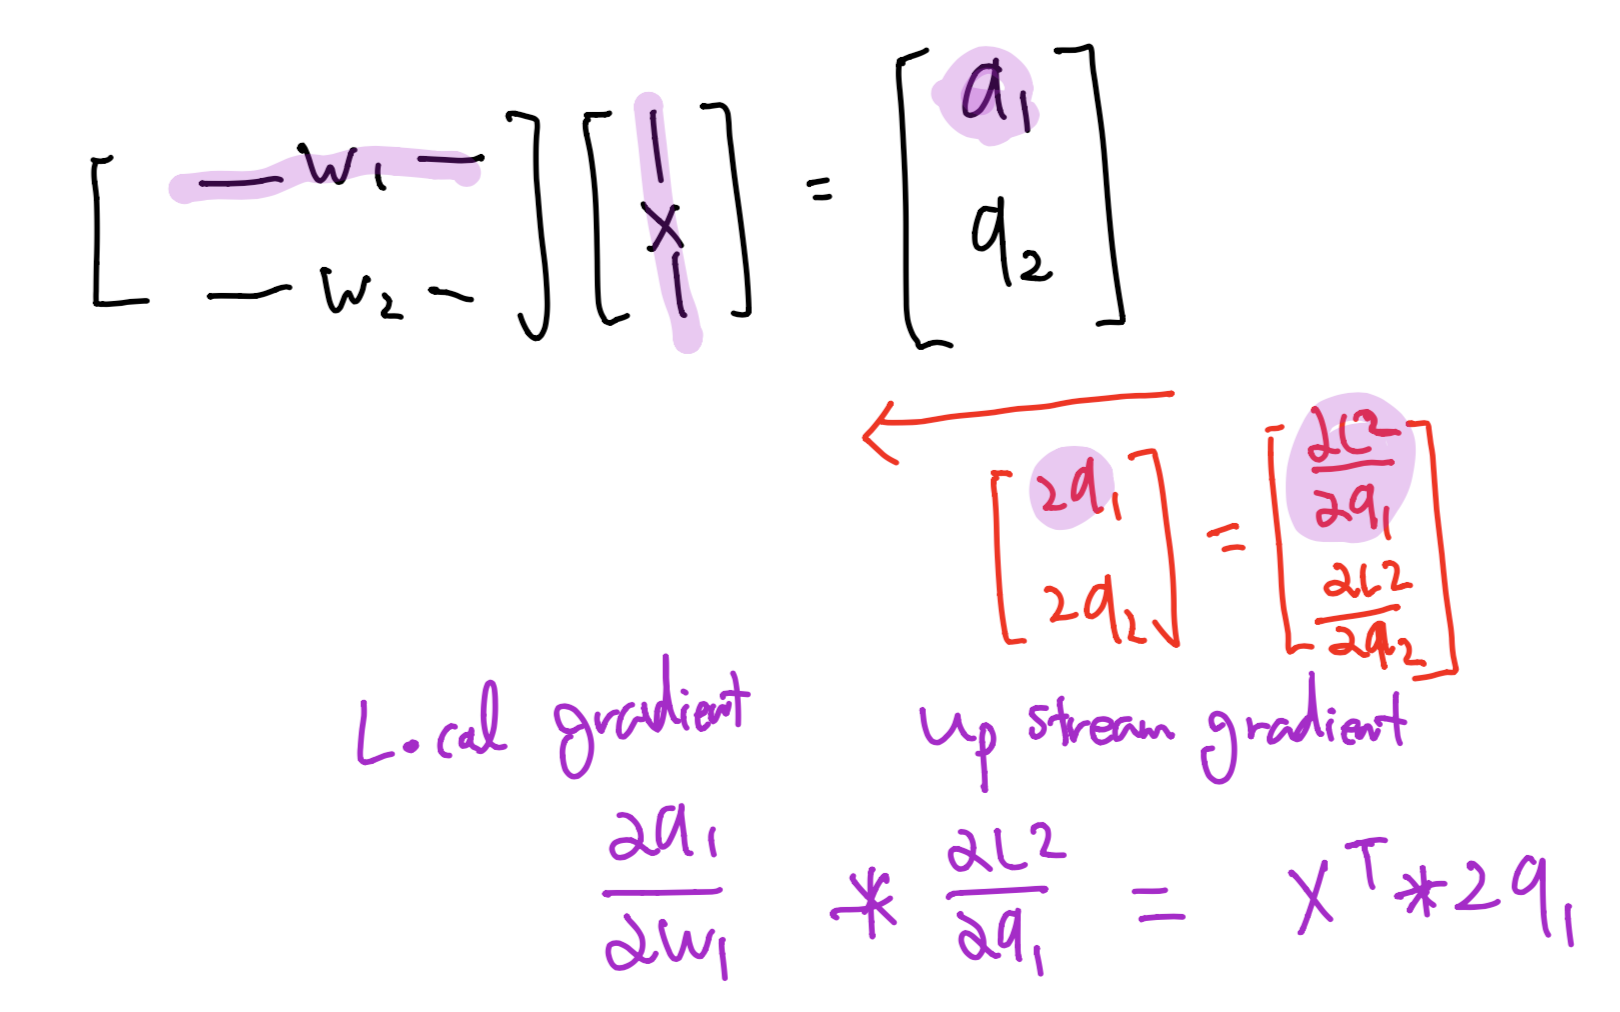 [ — w₁ — ] [ | ] = [ q₁ ]
[ — w₂ — ] [ x | ] [ q₂ ]
[ 2q₁ ] = [ ∂L2/∂q₁ ]
[ 2q₂ ] [ ∂L2/∂q₂ ]
Local gradient up stream gradient
∂q₁/∂w₁ * ∂L2/∂q₁ = x^T * 2q₁